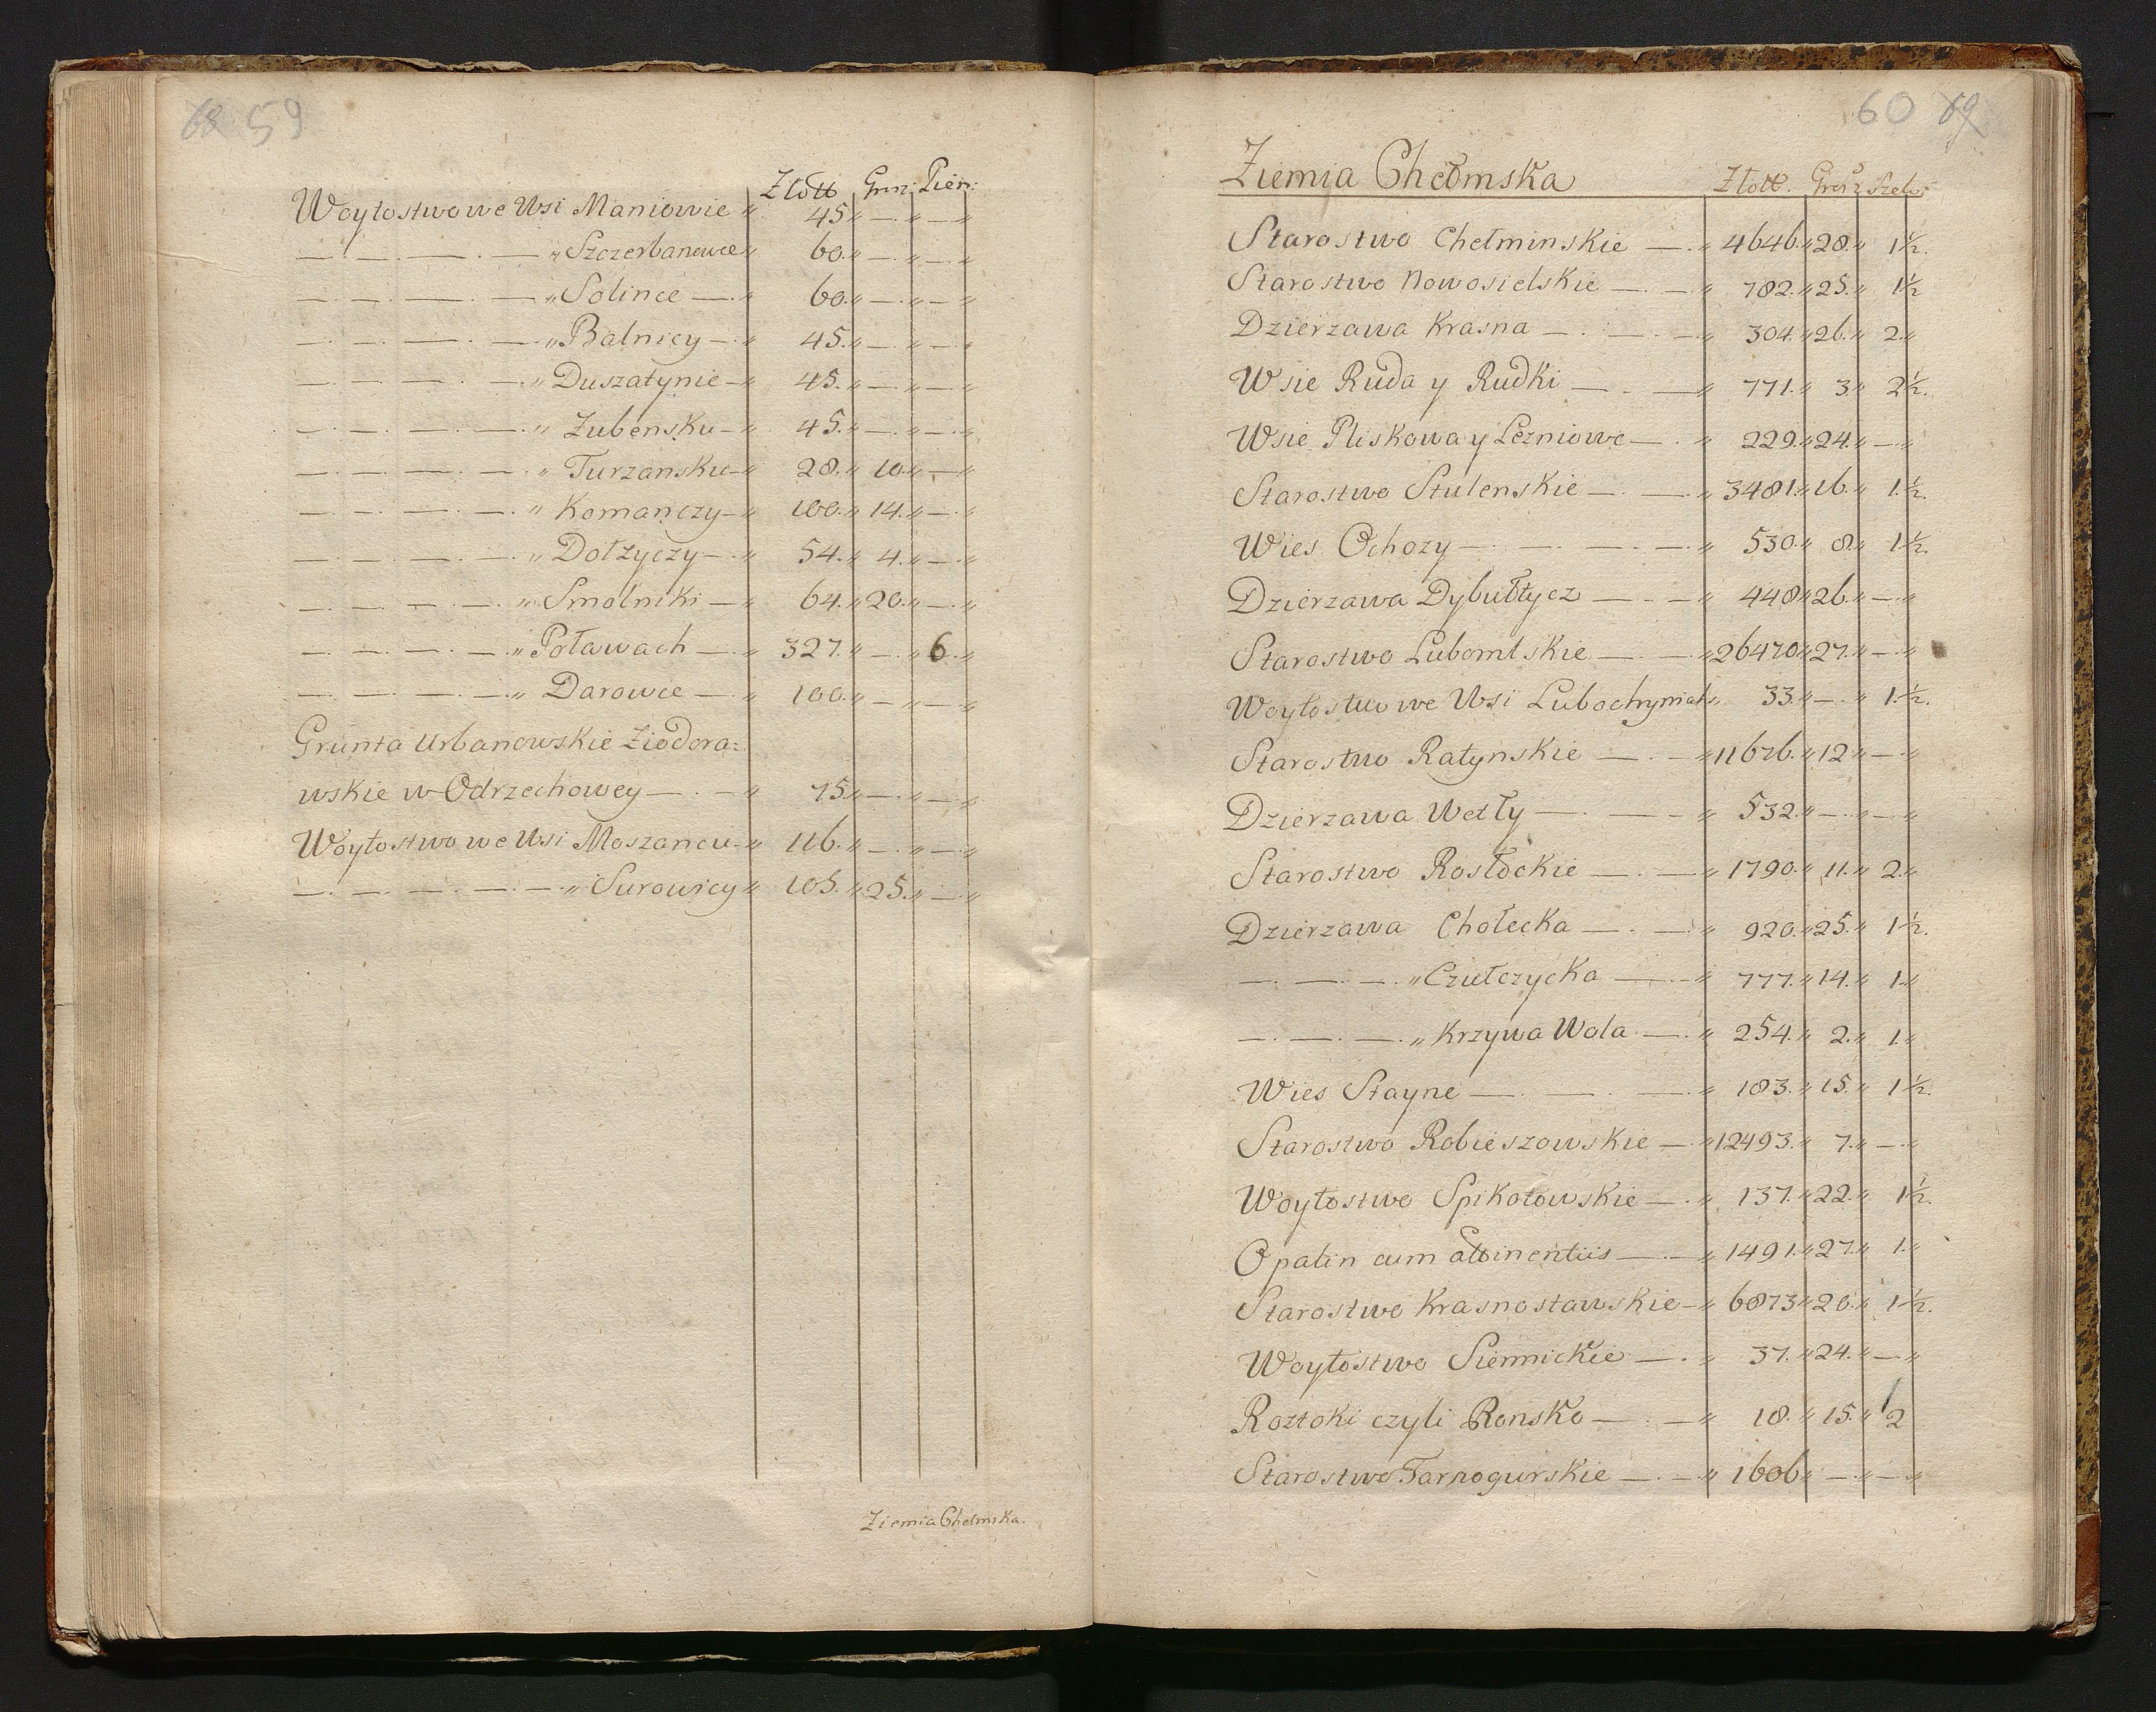 68 59
Złott Grosz: Pien:
Woytostwo we Wsi Maniowie " 45 " — . " — "
— . — . — . — " Szczerbanowce " 60. " — . " — . "
— . — . — . — " Solince — . " 60. " — . " — "
— . — . — . — . " Balnicy — . " 45. " — . " — . "
— . — . — . — . " Duszatynie — " 45. " — . " — . "
— . — . — . — . " Zubensku — " 45. " — . " — . "
— . — . — . — . " Turzansku — " 28. " 10. " — "
— . — . — . — . " Komanczy — " 100. " 14. " — . "
— . — . — . — . " Dołzyczy — . " 54. " 4. " — . "
— . — . — . — . " Smolniki — " 64. " 20. " — . "
— . — . — . — . " Poławach — . " 327. " — . " 6. "
— . — . — . — . " Darowce — . " 100. " — " — . "
Grunta Urbanowskie Ziodora=
wskie w Odrzechowey — . — " 75. " — . " — . "
Woytostwo we Wsi Moszancu — " 116. " — . " — . "
— . — . — . — . — . " Surowicy " 105. " 25. " — . "
Ziemia Chełmska.
60 69
Ziemia Chełmska Złott. Grosz Szel:
Starostwo Chełminskie — . " 4646. " 28. " 1½.
Starostwo Nowosielskie — . — " 782. " 25. " 1½
Dzierzawa Krasna — . — . — " 304. " 26. " 2. "
Wsie Ruda y Rudki — . — " 771. " 3. " 2½.
Wsie Pliskowa y Lezniowe — . " 229. " 24. " — . "
Starostwo Stulenskie — . — " 3481. " 16. " 1½.
Wies Ochozy — . — . — . — " 530. " 8. " 1½.
Dzierzawa Dybułtycz — . — " 448 " 26. " — . "
Starostwo Lubomlskie — . — " 26470 " 27. " — . "
Woytostwo we Wsi Lubochyniach " 33. " — . " 1½.
Starostwo Ratynskie — . — " 11676. " 12 " — . "
Dzierzawa Wetły — . — — " 532. " — . " — . "
Starostwo Rostockie — . — " 1790. " 11. " 2. "
Dzierzawa Chołecka — . — . " 920. " 25. " 1½.
— . — . — . " Czułczycka — . — " 777. " 14. " 1. "
— . — . — . " Krzywa Wola — . " 254. " 2. " 1. "
Wies Stayne — . — . — . " 183. " 15. " 1½.
Starostwo Robieszowskie — . " 12493. " 7. " — . "
Woytostwo Spikołowskie — . " 137. " 22. " 1½.
Opalin cum attinentiis — . — " 1491. " 27. " 1. "
Starostwo Krasnostawskie — " 6873 " 20. " 1½.
Woytostwo Siennickie — . " 37. " 24. " — . "
Roztoki czyli Ronsko — . — " 18. " 15. " 2
Starostwo Tarnogurskie — . — " 1606 " — . " — . "